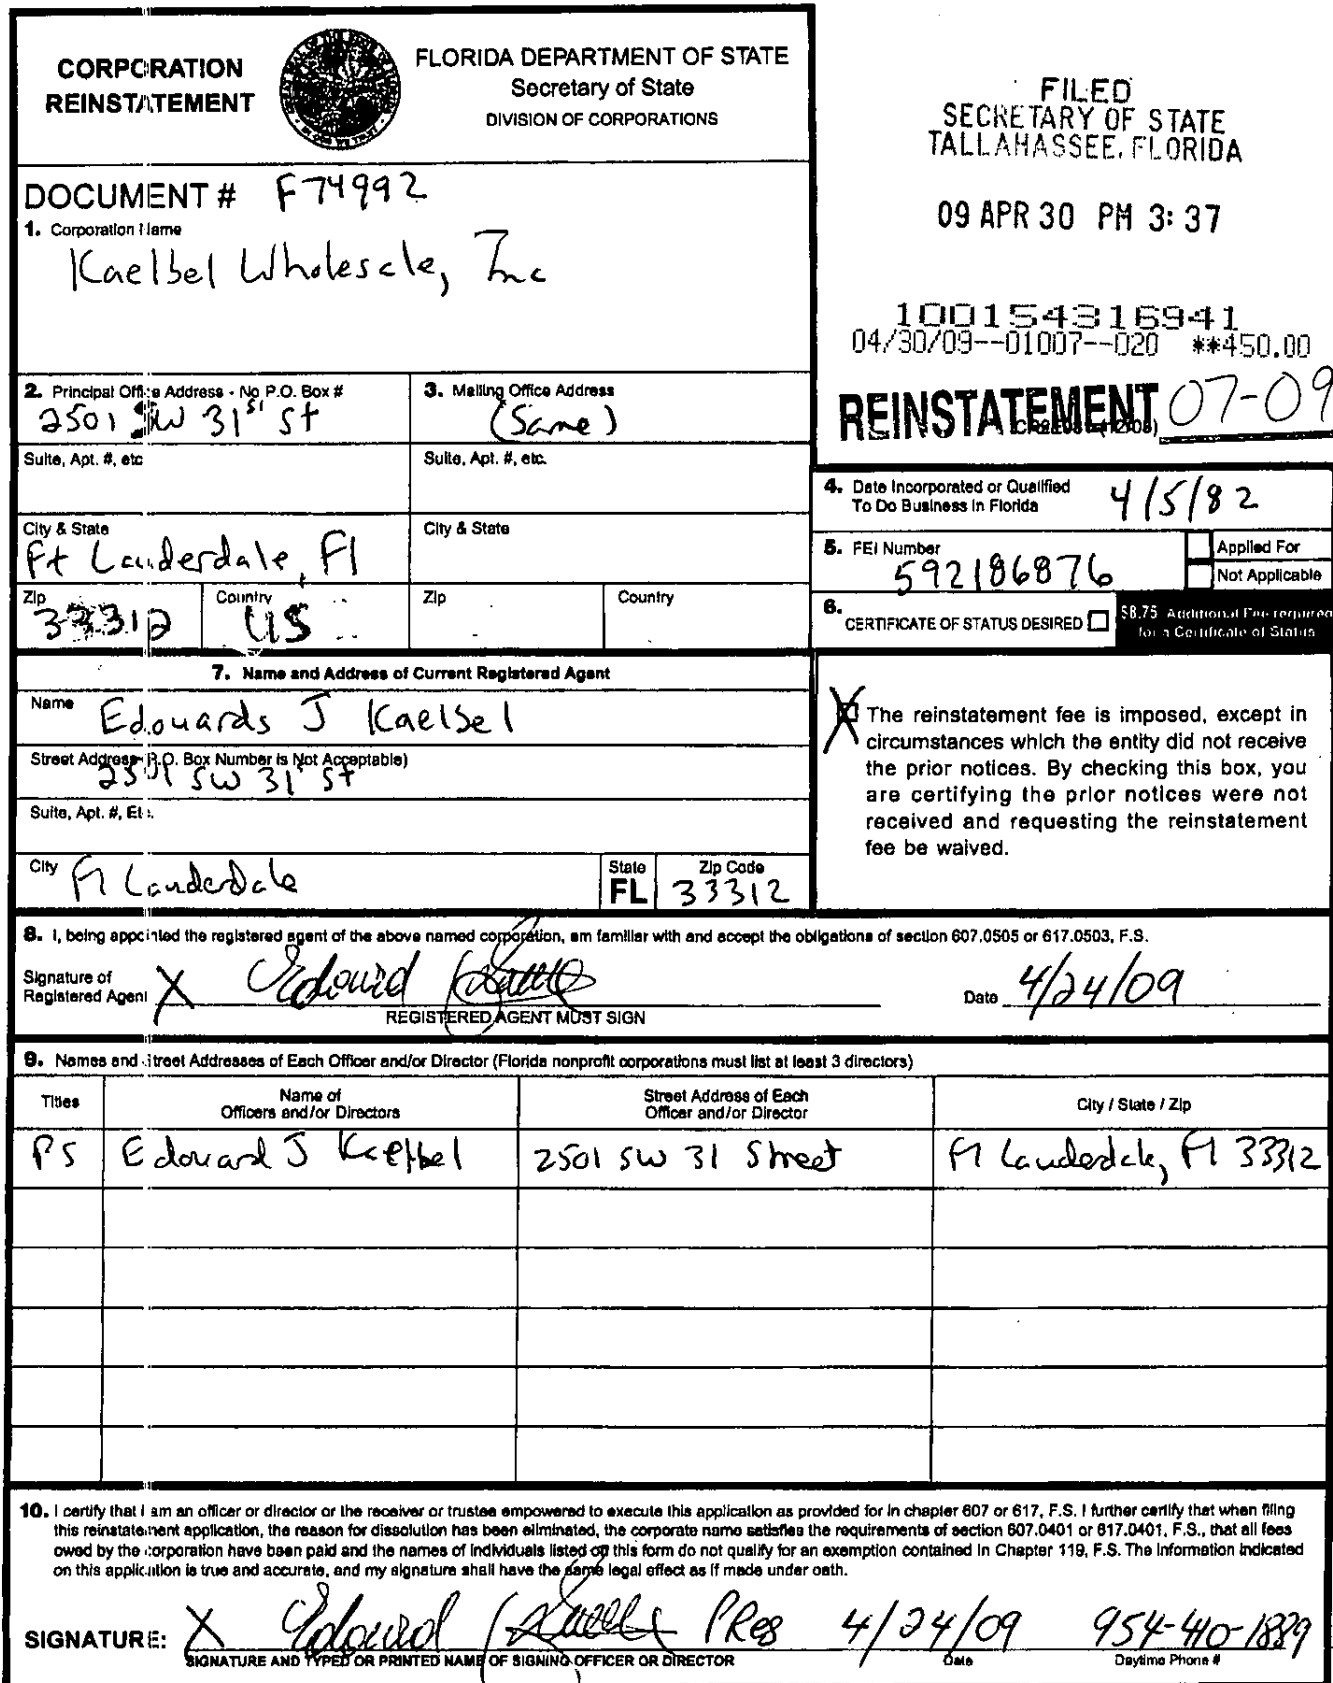 CORPORATION
REINSTATEMENT
FLORIDA DEPARTMENT OF STATE
Secretary of State
DIVISION OF CORPORATIONS
FILED
SECRETARY OF STATE
TALLAHASSEE, FLORIDA
09 APR 30 PM 3:37
DOCUMENT # F74992
1. Corporation Name
Kaelbel Wholesale, Inc
100154316941
04/30/09--01007--020 **450.00
REINSTATEMENT 07-09
2. Principal Office Address - No P.O. Box #
2501 SW 31st St
3. Mailing Office Address
(Same)
Suite, Apt. #, etc
Suite, Apt. #, etc.
City & State
Ft Lauderdale, Fl
City & State
Zip
33312
Country
US
Zip
Country
4. Date Incorporated or Qualified
To Do Business in Florida
4/5/82
5. FEI Number
592186876
Applied For
Not Applicable
6. CERTIFICATE OF STATUS DESIRED
$8.75 Additional Fee required
for a Certificate of Status
7. Name and Address of Current Registered Agent
Name Edouards J Kaelbel
Street Address- P.O. Box Number is Not Acceptable)
2501 SW 31st St
Suite, Apt. #, Etc.
City Ft Lauderdale
State
FL
Zip Code
33312
The reinstatement fee is imposed, except in
circumstances which the entity did not receive
the prior notices. By checking this box, you
are certifying the prior notices were not
received and requesting the reinstatement
fee be waived.
8. I, being appointed the registered agent of the above named corporation, am familiar with and accept the obligations of section 607.0505 or 617.0503, F.S.
Signature of
Registered Agent X Edouard
REGISTERED AGENT MUST SIGN
Date 4/24/09
9. Names and Street Addresses of Each Officer and/or Director (Florida nonprofit corporations must list at least 3 directors)
Titles
Name of
Officers and/or Directors
Street Address of Each
Officer and/or Director
City / State / Zip
PS Edouard J Kaelbel 2501 SW 31 Street Ft Lauderdale, Fl 33312
10. I certify that I am an officer or director or the receiver or trustee empowered to execute this application as provided for in chapter 607 or 617, F.S. I further certify that when filing
this reinstatement application, the reason for dissolution has been eliminated, the corporate name satisfies the requirements of section 607.0401 or 617.0401, F.S., that all fees
owed by the corporation have been paid and the names of individuals listed on this form do not qualify for an exemption contained in Chapter 119, F.S. The information indicated
on this application is true and accurate, and my signature shall have the same legal effect as if made under oath.
SIGNATURE: X Edouard PRes 4/24/09 954-410-1889
SIGNATURE AND TYPED OR PRINTED NAME OF SIGNING OFFICER OR DIRECTOR
Date
Daytime Phone #